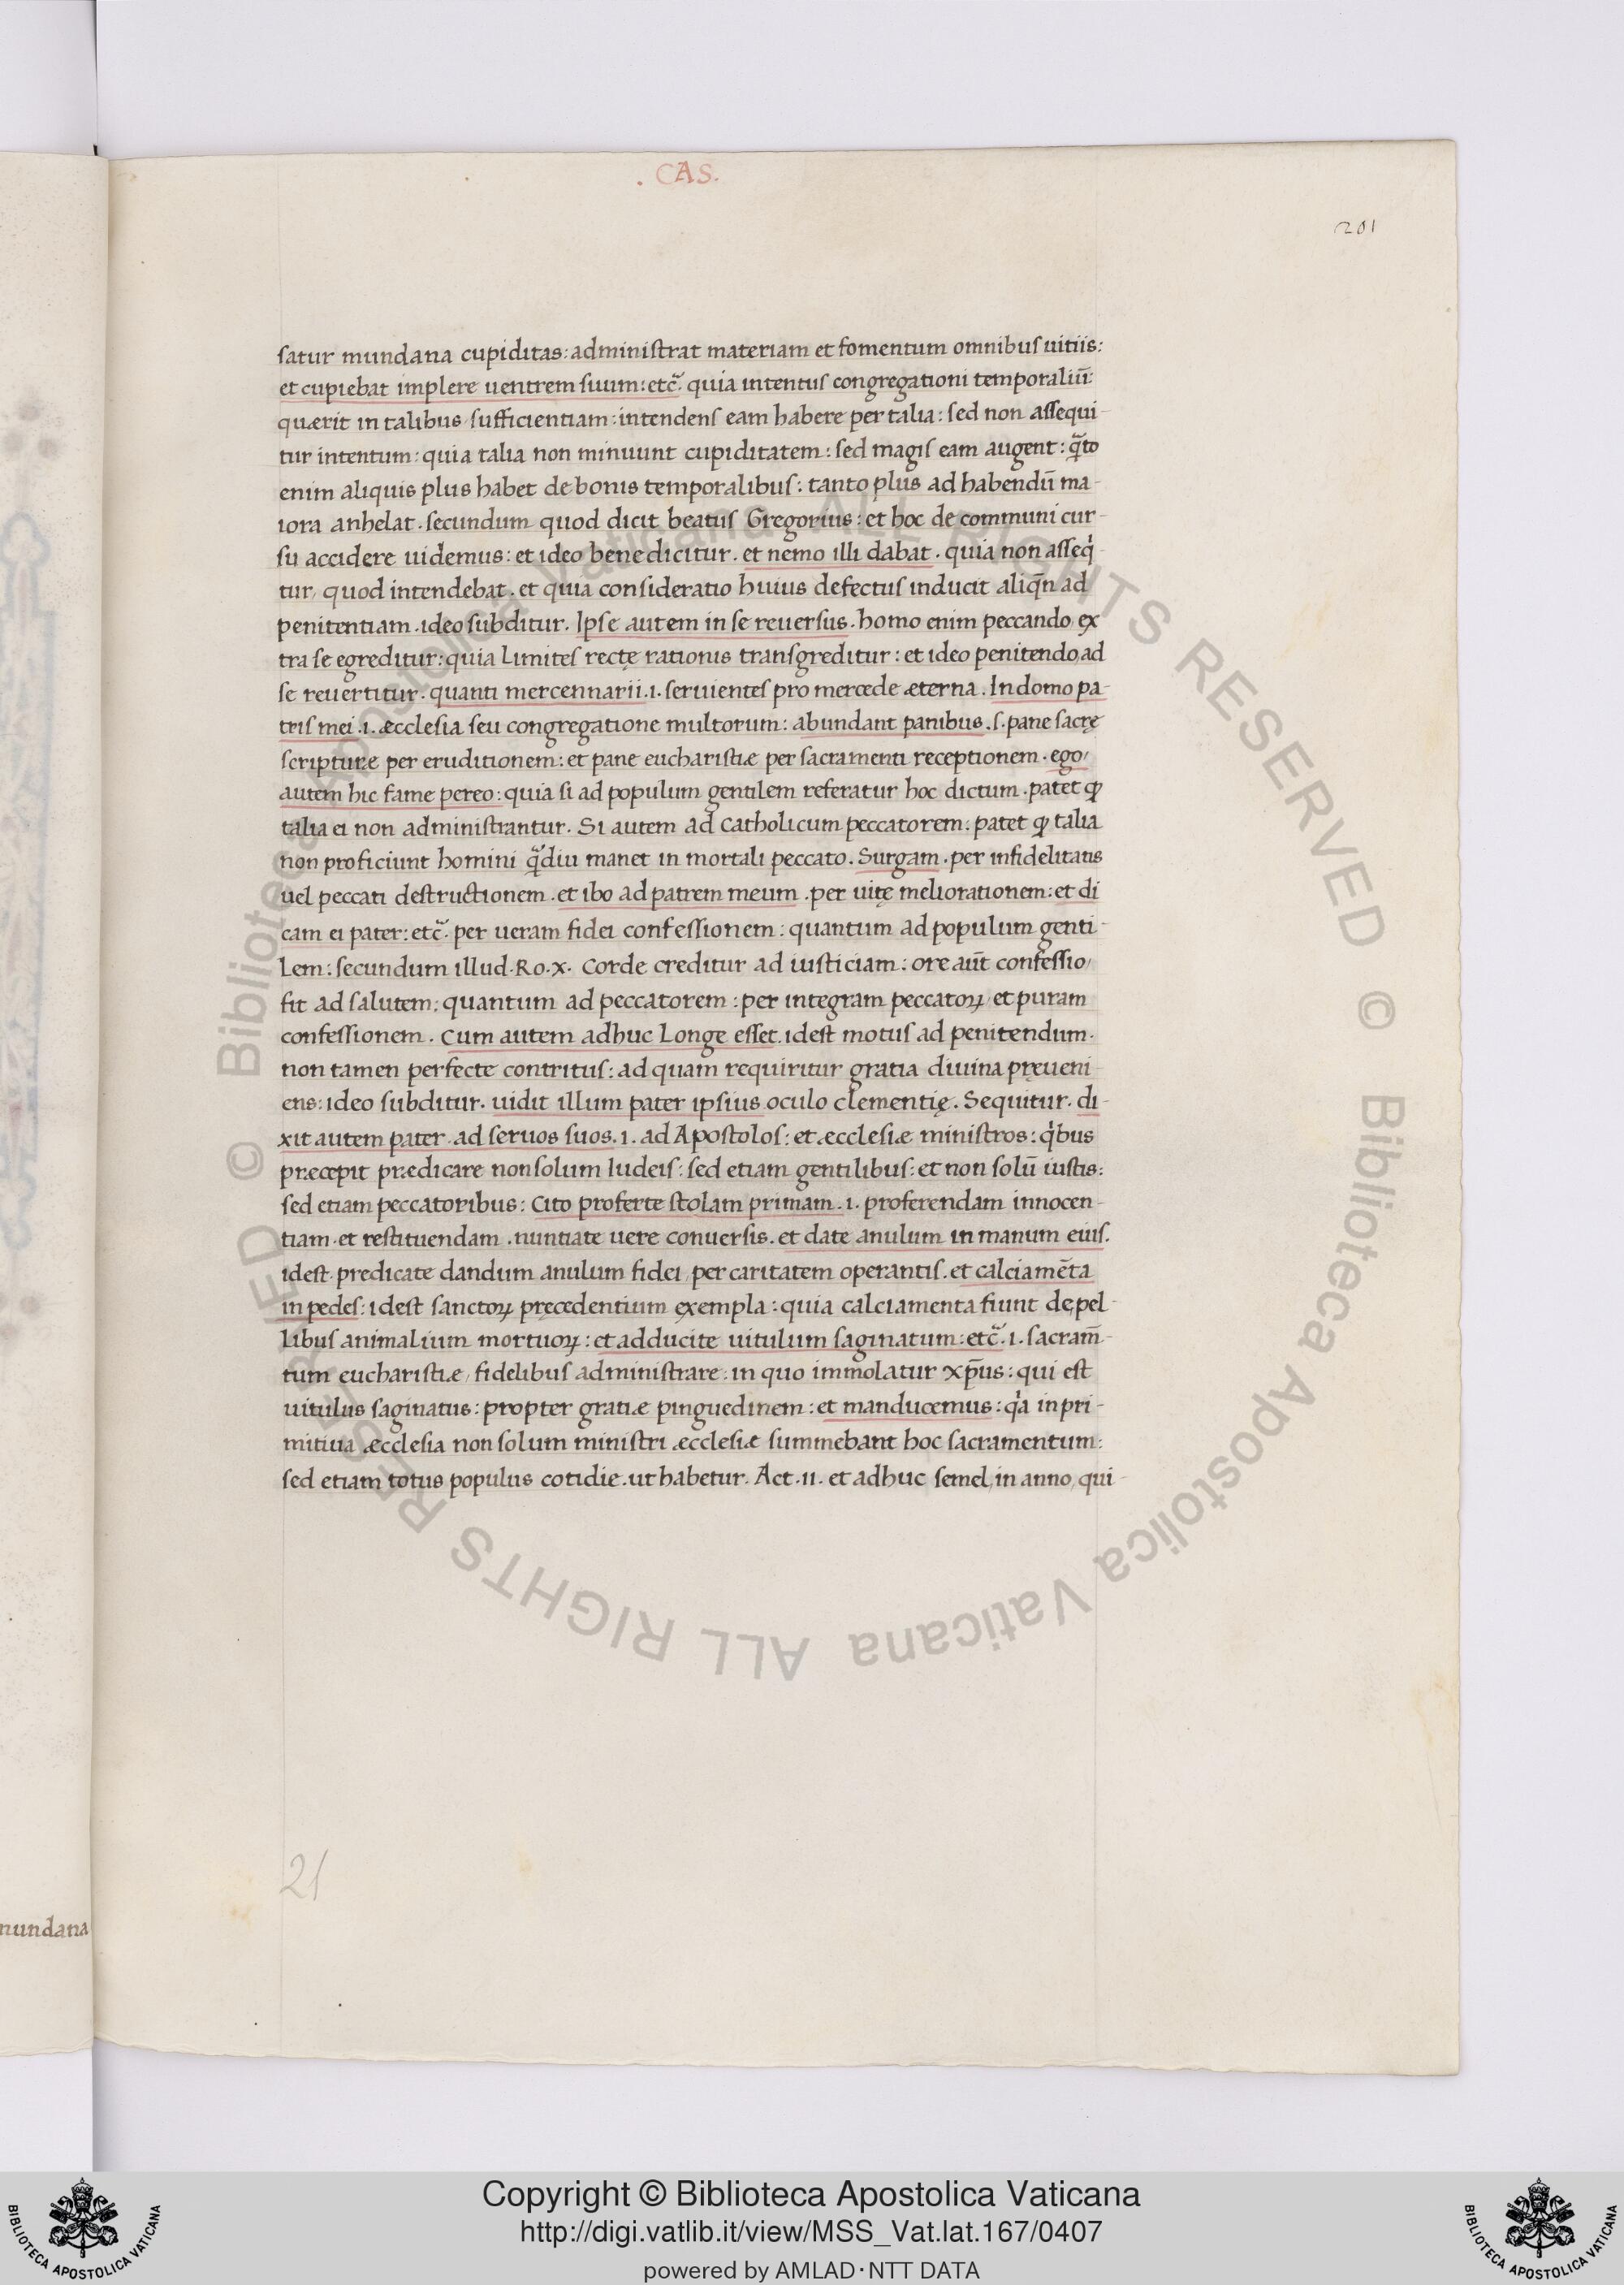 . CAS.
201
satur mundana cupiditas: administrat materiam et fomentum omnibus uitiis:
et cupiebat implere uentrem suum: etc̃. quia intentus congregationi temporaliũ:
quærit in talibus sufficientiam: intendens eam habere per talia: sed non assequi-
tur intentum: quia talia non minuunt cupiditatem: sed magis eam augent: q̃to
enim aliquis plus habet de bonis temporalibus: tanto plus ad habendũ ma-
iora anhelat. secundum quod dicit beatus Gregorius: et hoc de communi cur-
su accidere uidemus: et ideo bene dicitur. et nemo illi dabat. quia non asseqͥ-
tur, quod intendebat. et quia consideratio huius defectus inducit aliqñ ad
penitentiam. ideo subditur. Ipse autem in se reuersus. homo enim peccando, ex
tra se egreditur: quia Limites rectę rationis transgreditur: et ideo penitendo, ad
se reuertitur. quanti mercennarii .i. seruientes pro mercede æterna. In domo pa-
tris mei .i. æcclesia seu congregatione multorum: abundant panibus. s. pane sacrę
scripturę per eruditionem: et pane eucharistiæ per sacramenti receptionem. ego,
autem hic fame pereo: quia si ad populum gentilem referatur hoc dictum. patet ꝙ
talia ei non administrantur. Si autem ad Catholicum peccatorem: patet ꝙ talia
non proficiunt homini q̃diu manet in mortali peccato. Surgam. per infidelitatis
uel peccati destructionem. et ibo ad patrem meum. per uitę meliorationem: et di
cam ei pater: etc̃. per ueram fidei confessionem: quantum ad populum genti-
Lem: secundum illud. Ro. x. Corde creditur ad iusticiam: ore aũt confessio,
fit ad salutem: quantum ad peccatorem: per integram peccatoꝝ, et puram
confessionem. Cum autem adhuc Longe esset. idest motus ad penitendum.
non tamen perfecte contritus: ad quam requiritur gratia diuina pręueni-
ens: ideo subditur. uidit illum pater ipsius oculo clementię. Sequitur. di-
xit autem pater. ad seruos suos. i. ad Apostolos: et æcclesiæ ministros: qͥbus
præcepit prædicare non solum Iudeis: sed etiam gentilibus: et non solũ iustis:
sed etiam peccatoribus: Cito proferte stolam primam. i. proferendam innocen-
tiam. et restituendam. nuntiate uere conuersis. et date anulum in manum eius.
idest. predicate dandum anulum fidei, per caritatem operantis. et calciamẽta
in pedes: idest sanctoꝝ pręcedentium exempla: quia calciamenta fiunt de, pel-
libus animalium mortuoꝝ: et adducite uitulum saginatum: etc̃. i. sacram̃-
tum eucharistiæ, fidelibus administrare: in quo immolatur xp̃us: qui est
uitulus saginatus: propter gratiæ pinguedinem: et manducemus: qͣa in pri-
mitiua æcclesia non solum ministri æcclesiæ summebant hoc sacramentum:
sed etiam totus populus cotidie. ut habetur. Act. ii. et adhuc semel, in anno, qui-
21
mundana
© Biblioteca Apostolica Vaticana ALL RIGHTS RESERVED © Biblioteca Apostolica Vaticana ALL RIGHTS RESERVED
Copyright © Biblioteca Apostolica Vaticana
http://digi.vatlib.it/view/MSS_Vat.lat.167/0407
powered by AMLAD·NTT DATA
BIBLIOTECA APOSTOLICA VATICANA
BIBLIOTECA APOSTOLICA VATICANA